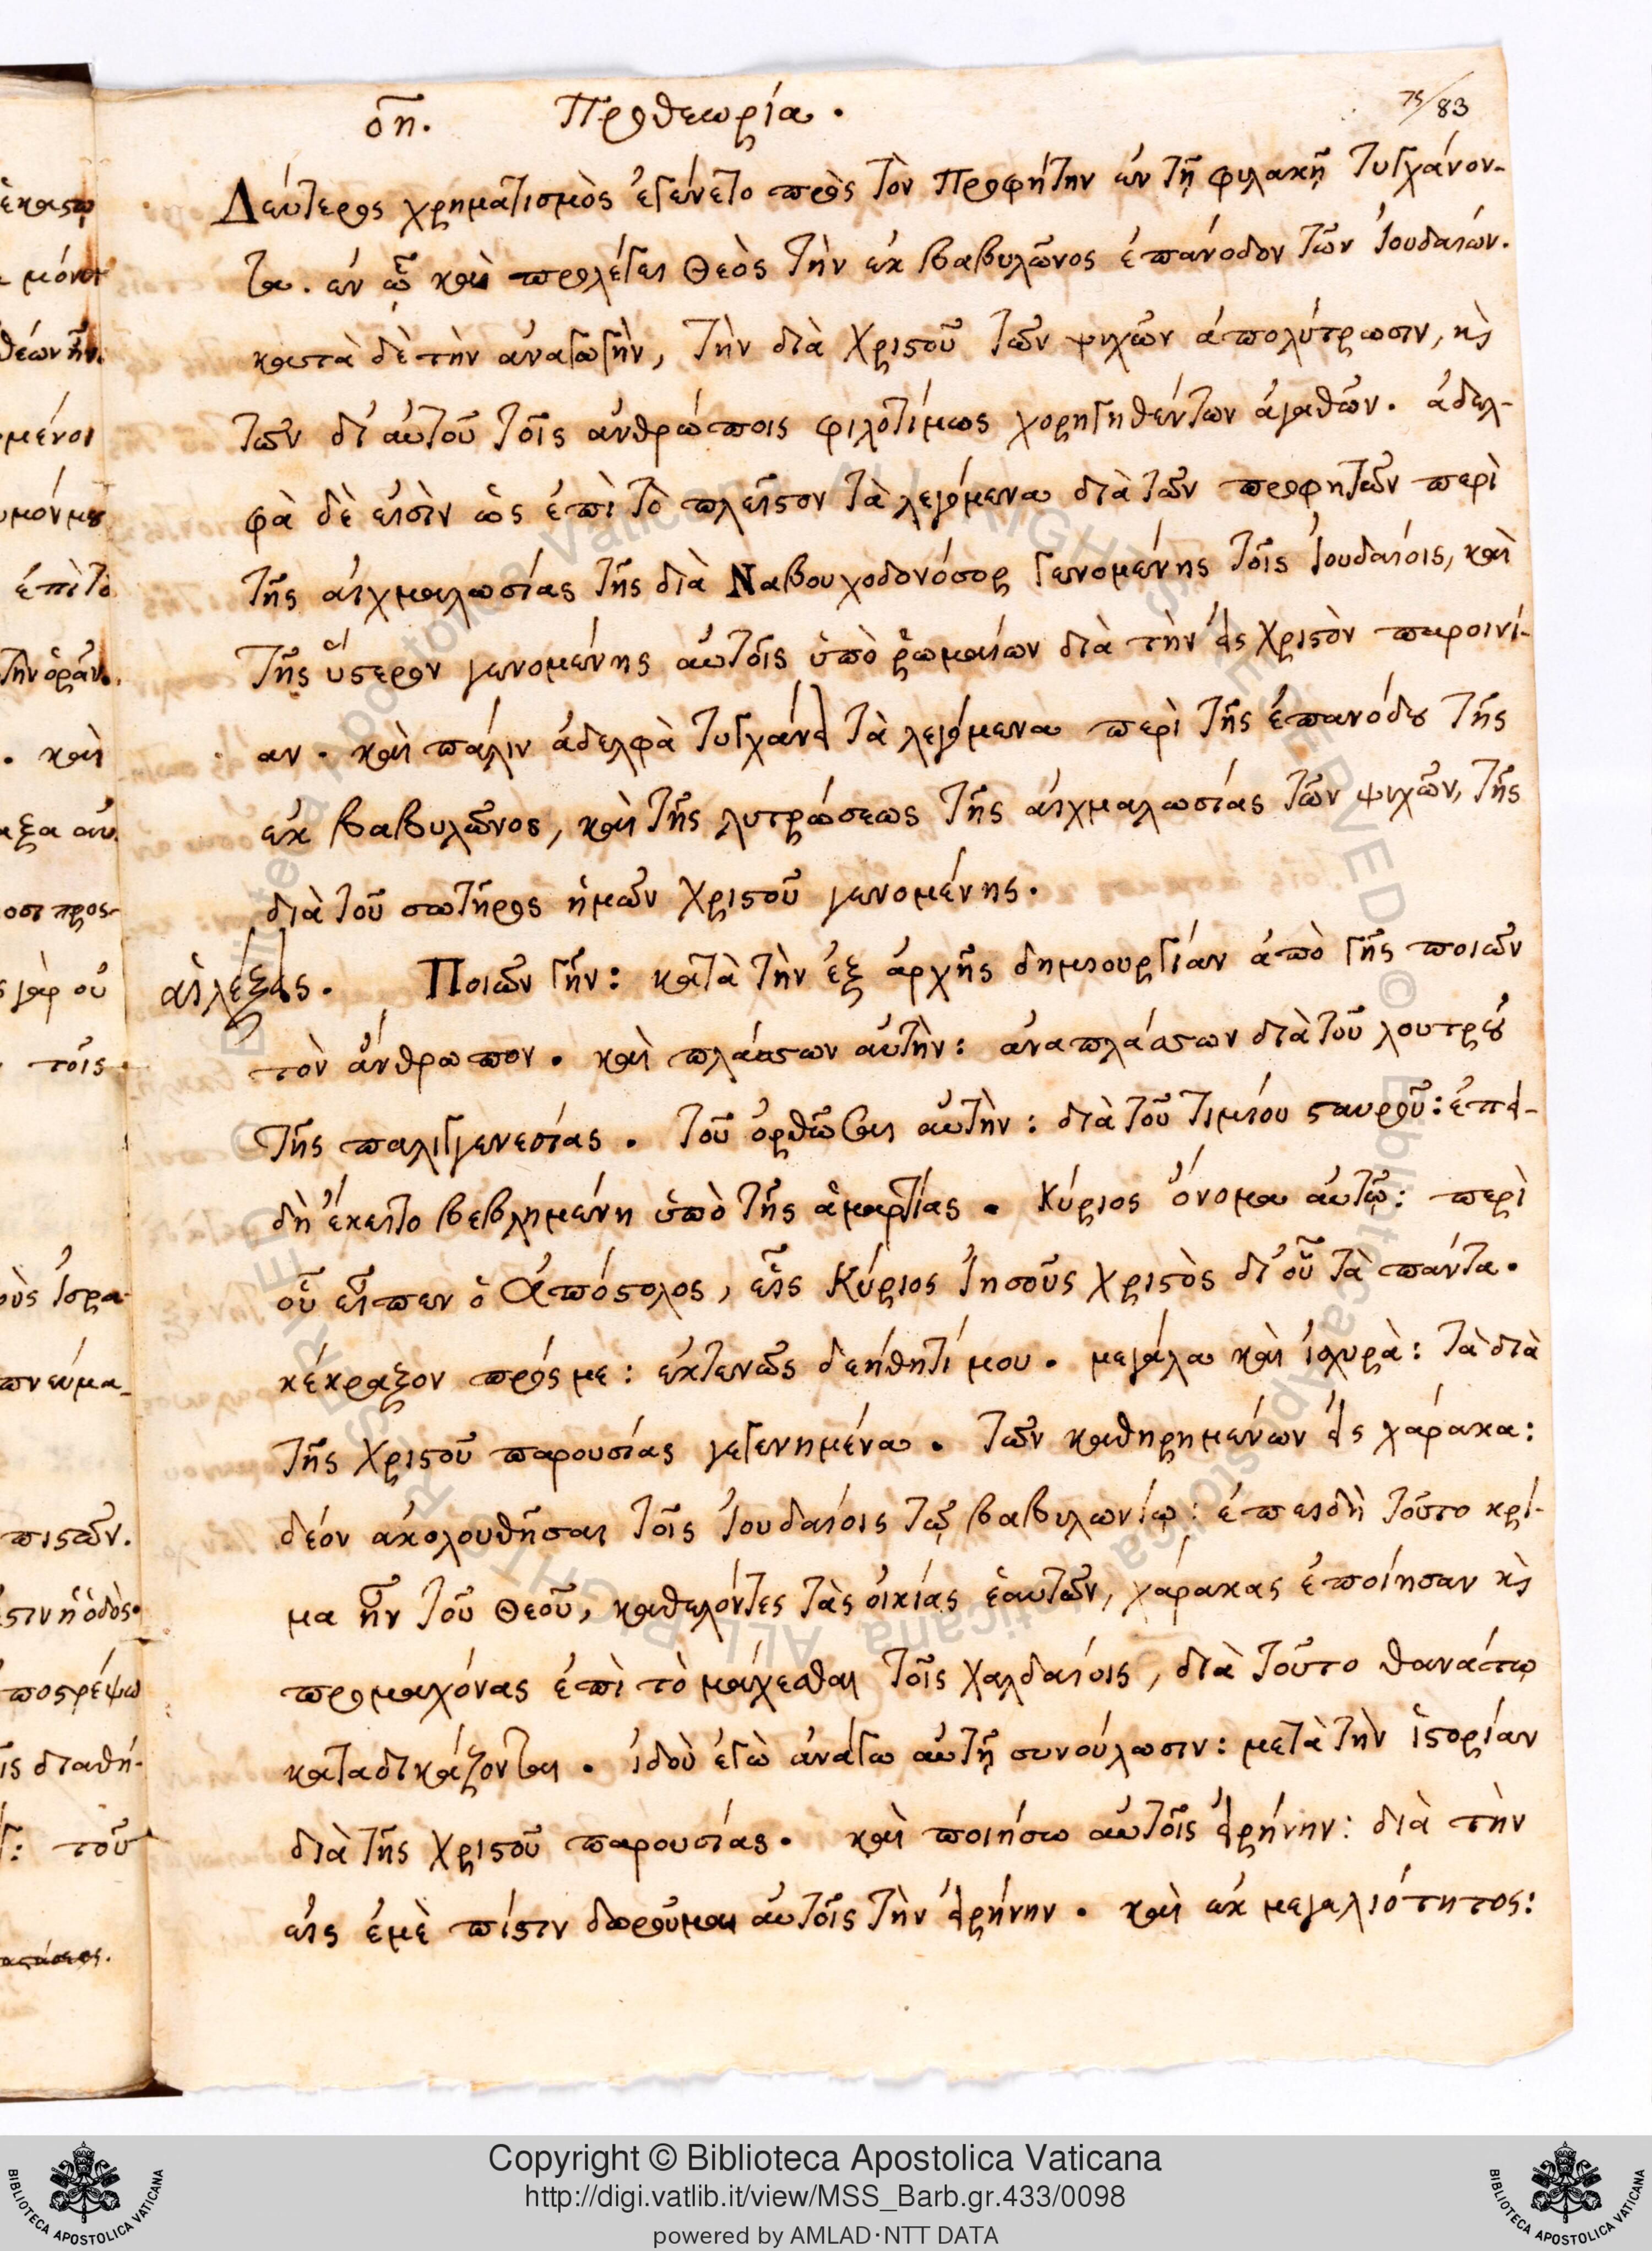 οη. Προθεωρία. 75/83
Δεύτερος χρηματισμὸς ἐγένετο πρὸς τὸν Προφήτην ἐν τῇ φυλακῇ τυγχάνον-
τα. ἐν ᾧ καὶ προλέγει Θεὸς τὴν ἐκ βαβυλῶνος ἐπάνοδον τῶν Ἰουδαίων.
κατὰ δὲ τὴν ἀναγωγὴν, τὴν διὰ Χριστοῦ τῶν ψυχῶν ἀπολύτρωσιν, κὶ
τῶν δι' αὐτοῦ τοῖς ἀνθρώποις φιλοτίμως χορηγηθέντων ἀγαθῶν. ἀδελ-
φὰ δὲ εἰσὶν ὡς ἐπὶ τὸ πλεῖστον τὰ λεγόμενα διὰ τῶν προφητῶν περὶ
τῆς αἰχμαλωσίας τῆς διὰ Ναβουχοδονόσορ γενομένης τοῖς Ἰουδαίοις, καὶ
τῆς ὕστερον γενομένης αὐτοῖς ὑπὸ ῥωμαίων διὰ τὴν εἰς Χριστὸν παροινί-
αν. καὶ πάλιν ἀδελφὰ τυγχάνει τὰ λεγόμενα περὶ τῆς ἐπανόδου τῆς
ἐκ βαβυλῶνος, καὶ τῆς λυτρώσεως τῆς αἰχμαλωσίας τῶν ψυχῶν, τῆς
διὰ τοῦ σωτῆρος ἡμῶν Χριστοῦ γενομένης.
αἱ λέξεις. Ποιῶν γῆν: κατὰ τὴν ἐξ ἀρχῆς δημιουργίαν ἀπὸ γῆς ποιῶν
τὸν ἄνθρωπον. καὶ πλάσσων αὐτὴν: ἀναπλάσσων διὰ τοῦ λουτροῦ
τῆς παλιγγενεσίας. τοῦ ὀρθῶσαι αὐτὴν: διὰ τοῦ τιμίου σταυροῦ: ἐπει-
δὴ ἔκειτο βεβλημένη ὑπὸ τῆς ἁμαρτίας. Κύριος ὄνομα αὐτῷ: περὶ
οὗ εἶπεν ὁ Ἀπόστολος, εἷς Κύριος Ἰησοῦς Χριστὸς δι' οὗ τὰ πάντα.
κέκραξον πρός με: ἐκτενῶς δεήθητί μου. μεγάλα καὶ ἰσχυρὰ: τὰ διὰ
τῆς Χριστοῦ παρουσίας γεγενημένα. τῶν καθηρημένων εἰς χάρακα:
δέον ἀκολουθῆσαι τοῖς Ἰουδαίοις τῷ βαβυλωνίῳ: ἐπειδὴ τοῦτο κρί-
μα ἦν τοῦ Θεοῦ, καθελόντες τὰς οἰκίας ἑαυτῶν, χάρακας ἐποίησαν κὶ
προμαχόνας ἐπὶ τὸ μάχεσθαι τοῖς χαλδαίοις, διὰ τοῦτο θανάτῳ
καταδικάζονται. ἰδοὺ ἐγὼ ἀνάγω αὐτῇ συνούλωσιν: μετὰ τὴν ἱστορίαν
διὰ τῆς Χριστοῦ παρουσίας. καὶ ποιήσω αὐτοῖς εἰρήνην: διὰ τὴν
εἰς ἐμὲ πίστιν δωροῦμαι αὐτοῖς τὴν εἰρήνην. καὶ ἐκ μεγαλιότητος:
Copyright © Biblioteca Apostolica Vaticana
http://digi.vatlib.it/view/MSS_Barb.gr.433/0098
powered by AMLAD·NTT DATA